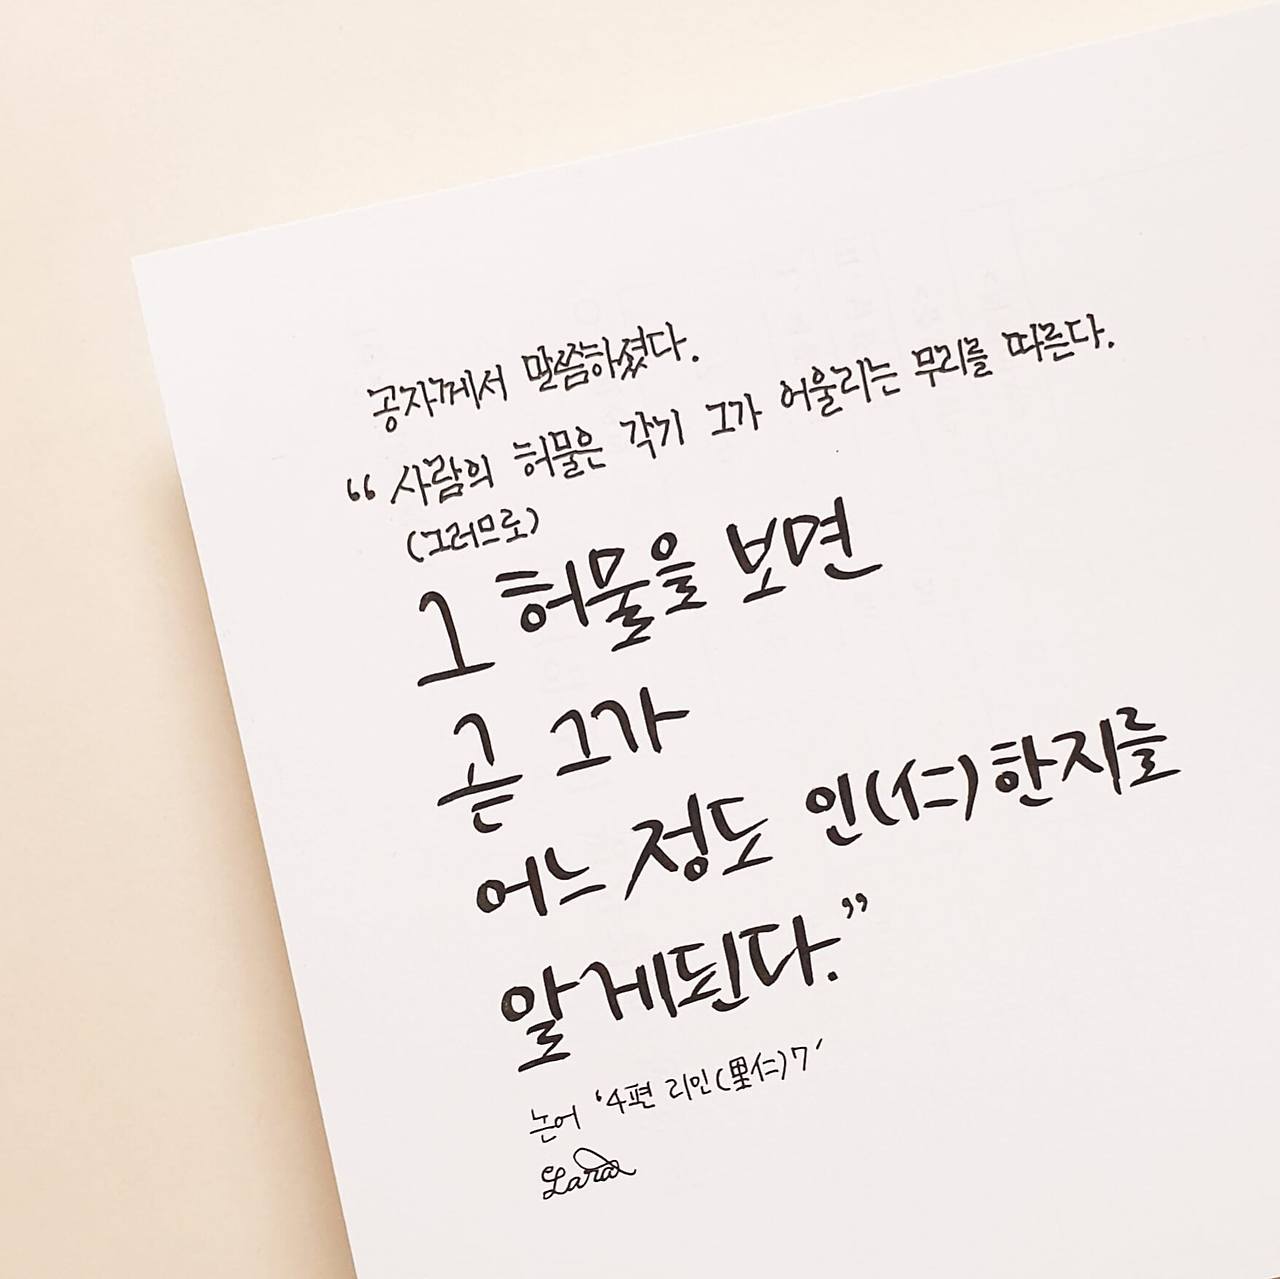 공자께서 말씀하셨다.
“ 사람의 허물은 각기 그가 어울리는 무리를 따른다.
(그러므로)
그 허물을 보면
곧 그가
어느 정도 인(仁)한지를
알게된다.”
논어 '4편 리인(里仁)7'
Lara